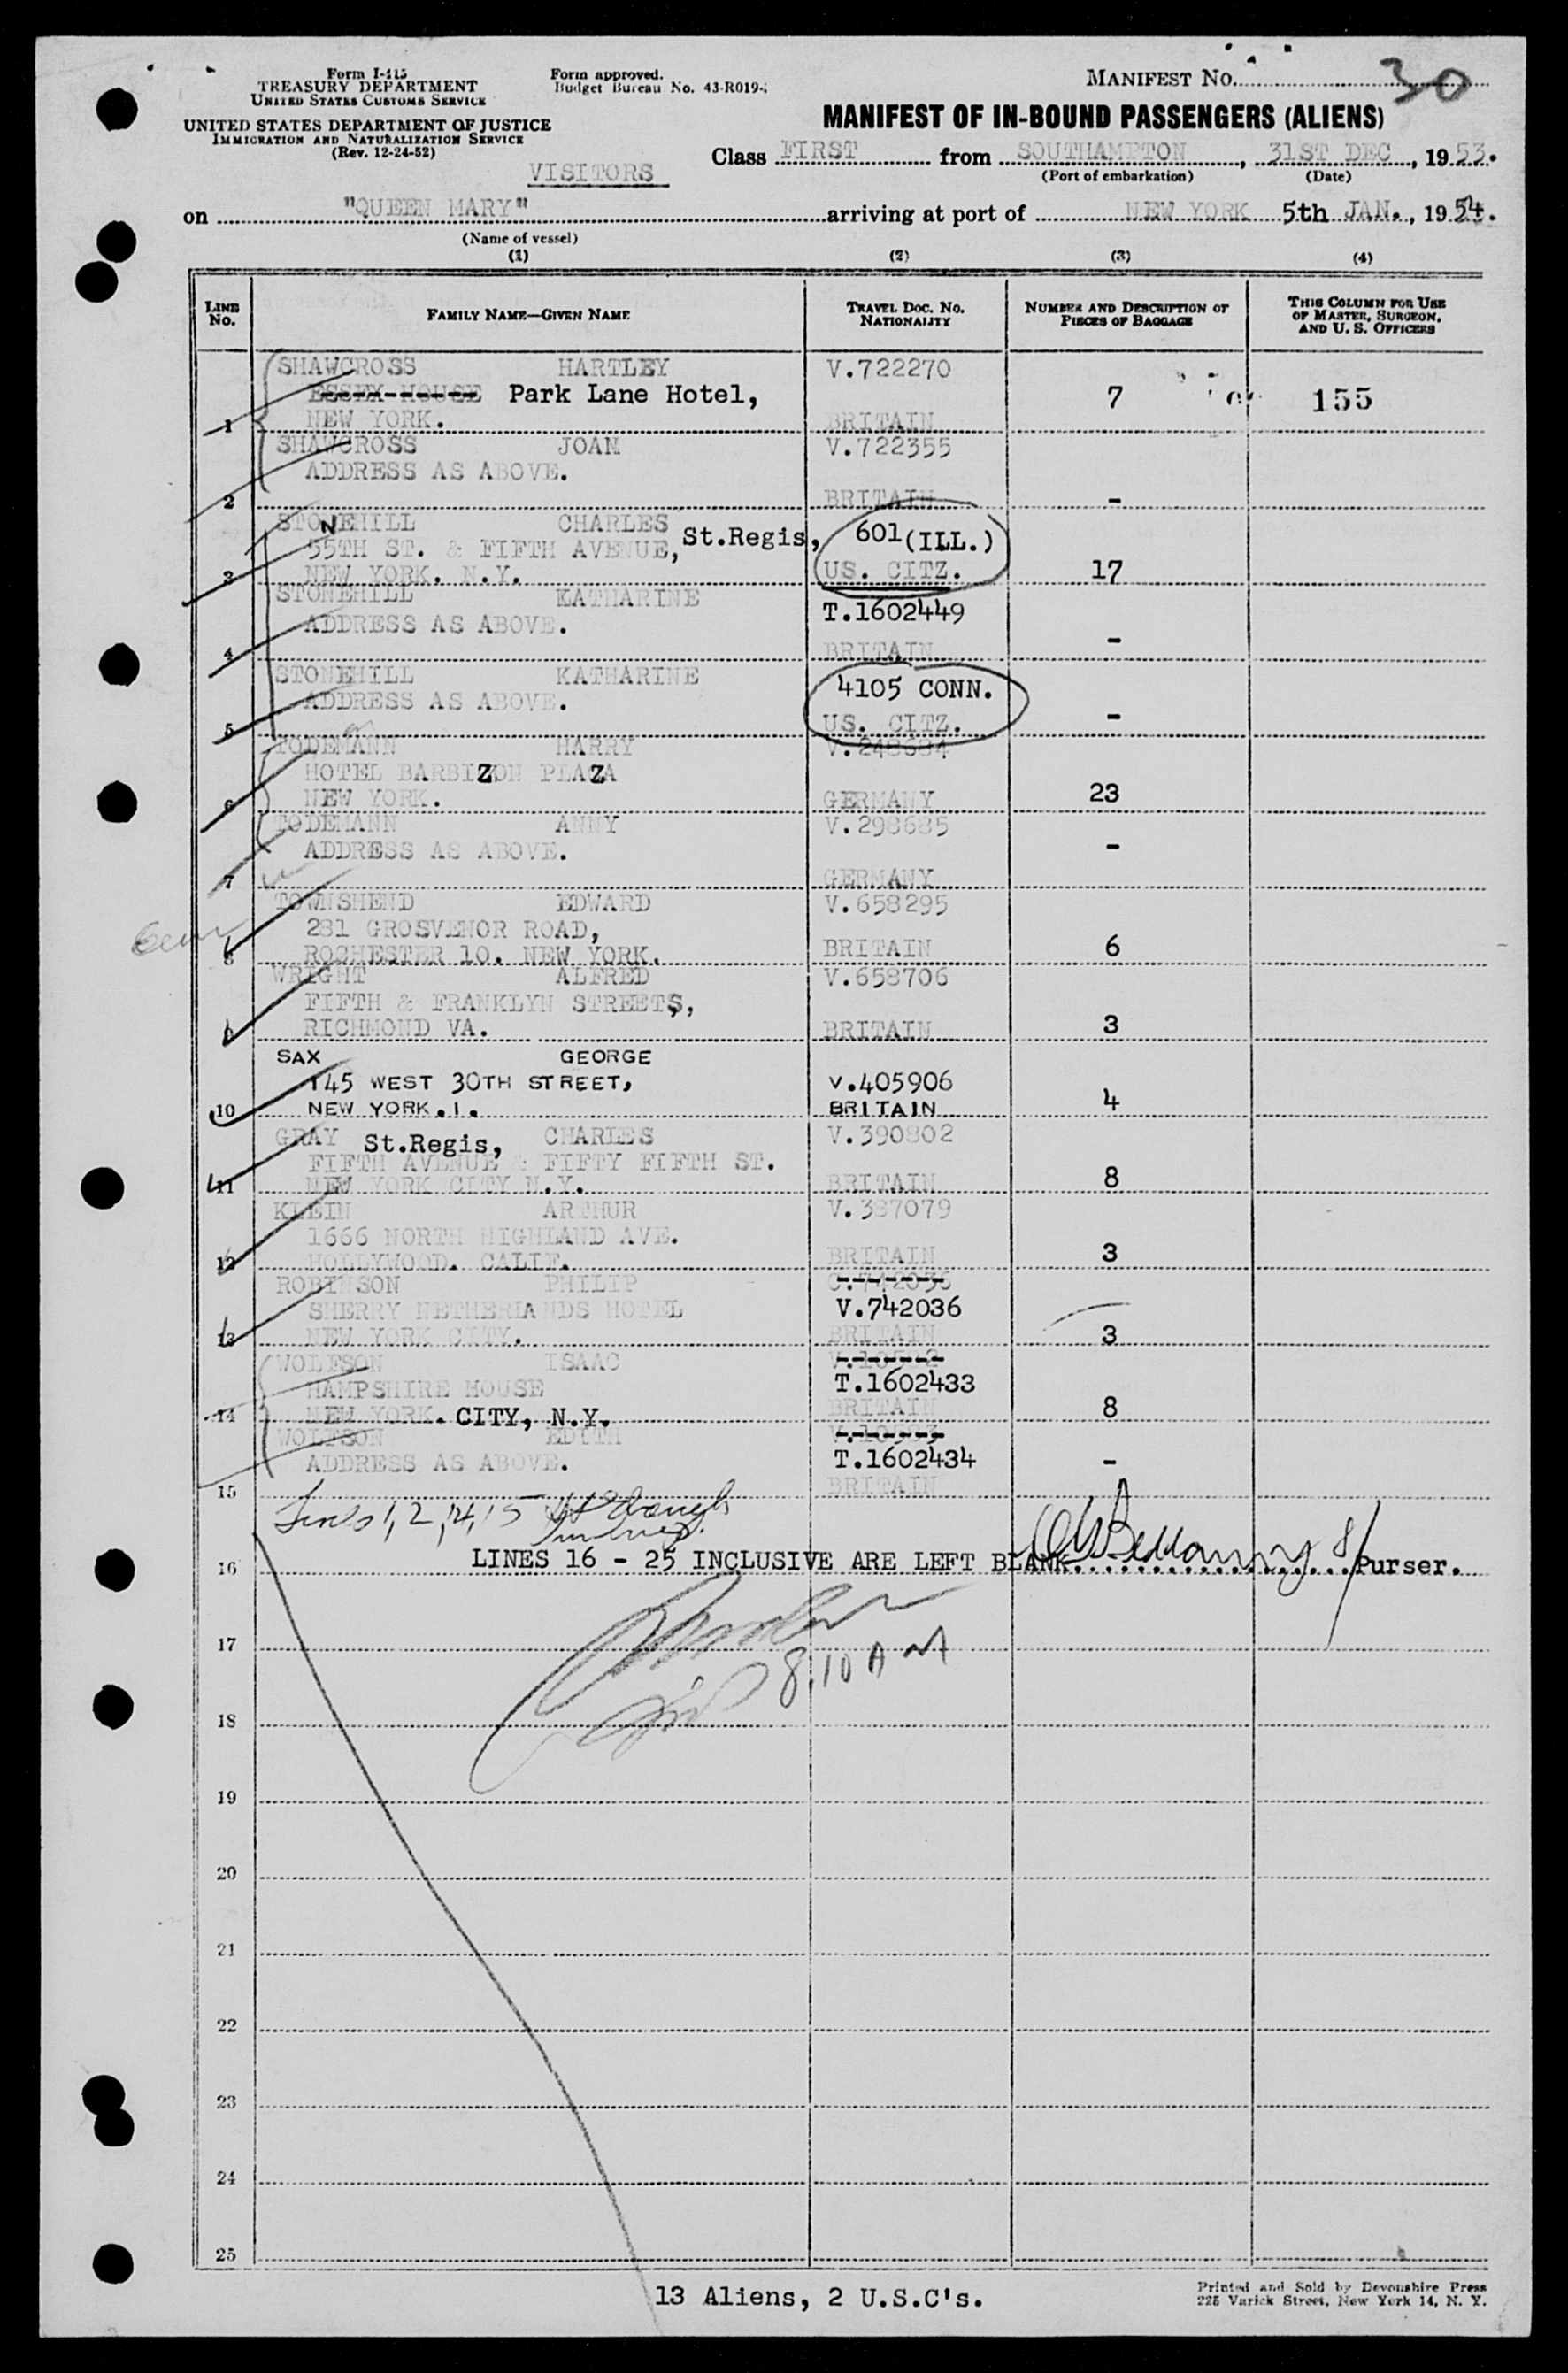 Form I-415
TREASURY DEPARTMENT
UNITED STATES CUSTOMS SERVICE
UNITED STATES DEPARTMENT OF JUSTICE
IMMIGRATION AND NATURALIZATION SERVICE
(Rev. 12-24-52)
Form approved.
Budget Bureau No. 43-R019-
MANIFEST NO. 30
MANIFEST OF IN-BOUND PASSENGERS (ALIENS)
Class FIRST from SOUTHAMPTON, 31ST DEC, 1953.
(Port of embarkation) (Date)
VISITORS
on "QUEEN MARY" arriving at port of NEW YORK 5th JAN., 1954.
(Name of vessel)
(1) (2) (3) (4)
LINE NO. FAMILY NAME—GIVEN NAME TRAVEL DOC. NO. NATIONALITY NUMBER AND DESCRIPTION OF PIECES OF BAGGAGE THIS COLUMN FOR USE OF MASTER, SURGEON, AND U. S. OFFICERS
SHAWCROSS HARTLEY V.722270
ESSEX HOUSE Park Lane Hotel, 7 155
1 NEW YORK. BRITAIN
SHAWCROSS JOAN V.722355
ADDRESS AS ABOVE.
2 BRITAIN -
STONEHILL CHARLES 601 (ILL.)
55TH ST. & FIFTH AVENUE, St.Regis,
3 NEW YORK. N.Y. US. CITZ. 17
STONEHILL KATHARINE T.1602449
ADDRESS AS ABOVE.
4 BRITAIN -
STONEHILL KATHARINE 4105 CONN.
ADDRESS AS ABOVE.
5 US. CITZ. -
TODEMANN HARRY
HOTEL BARBIZON PLAZA
6 NEW YORK. GERMANY 23
TODEMANN ANNY V.298685
ADDRESS AS ABOVE. -
7 GERMANY
TOWNSHEND EDWARD V.658295
281 GROSVENOR ROAD,
8 ROCHESTER 10. NEW YORK. BRITAIN 6
WRIGHT ALFRED V.658706
FIFTH & FRANKLYN STREETS,
9 RICHMOND VA. BRITAIN 3
SAX GEORGE
145 WEST 30TH STREET, V.405906
10 NEW YORK.1. BRITAIN 4
GRAY St.Regis, CHARLES V.390802
FIFTH AVENUE & FIFTY FIFTH ST.
11 NEW YORK CITY N.Y. BRITAIN 8
KLEIN ARTHUR V.387079
1666 NORTH HIGHLAND AVE.
12 HOLLYWOOD. CALIF. BRITAIN 3
ROBINSON PHILIP
SHERRY NETHERLANDS HOTEL V.742036
13 NEW YORK CITY. BRITAIN 3
WOLFSON ISAAC
HAMPSHIRE HOUSE T.1602433
14 NEW YORK. CITY, N.Y. BRITAIN 8
WOLFSON EDITH
ADDRESS AS ABOVE. T.1602434 -
15 BRITAIN
Lines 1, 2, 14, 15
16 LINES 16 - 25 INCLUSIVE ARE LEFT BLANK Purser.
17
8.10 AM
18
19
20
21
22
23
24
25
13 Aliens, 2 U.S.C's.
Printed and Sold by Devonshire Press
225 Varick Street, New York 14, N. Y.